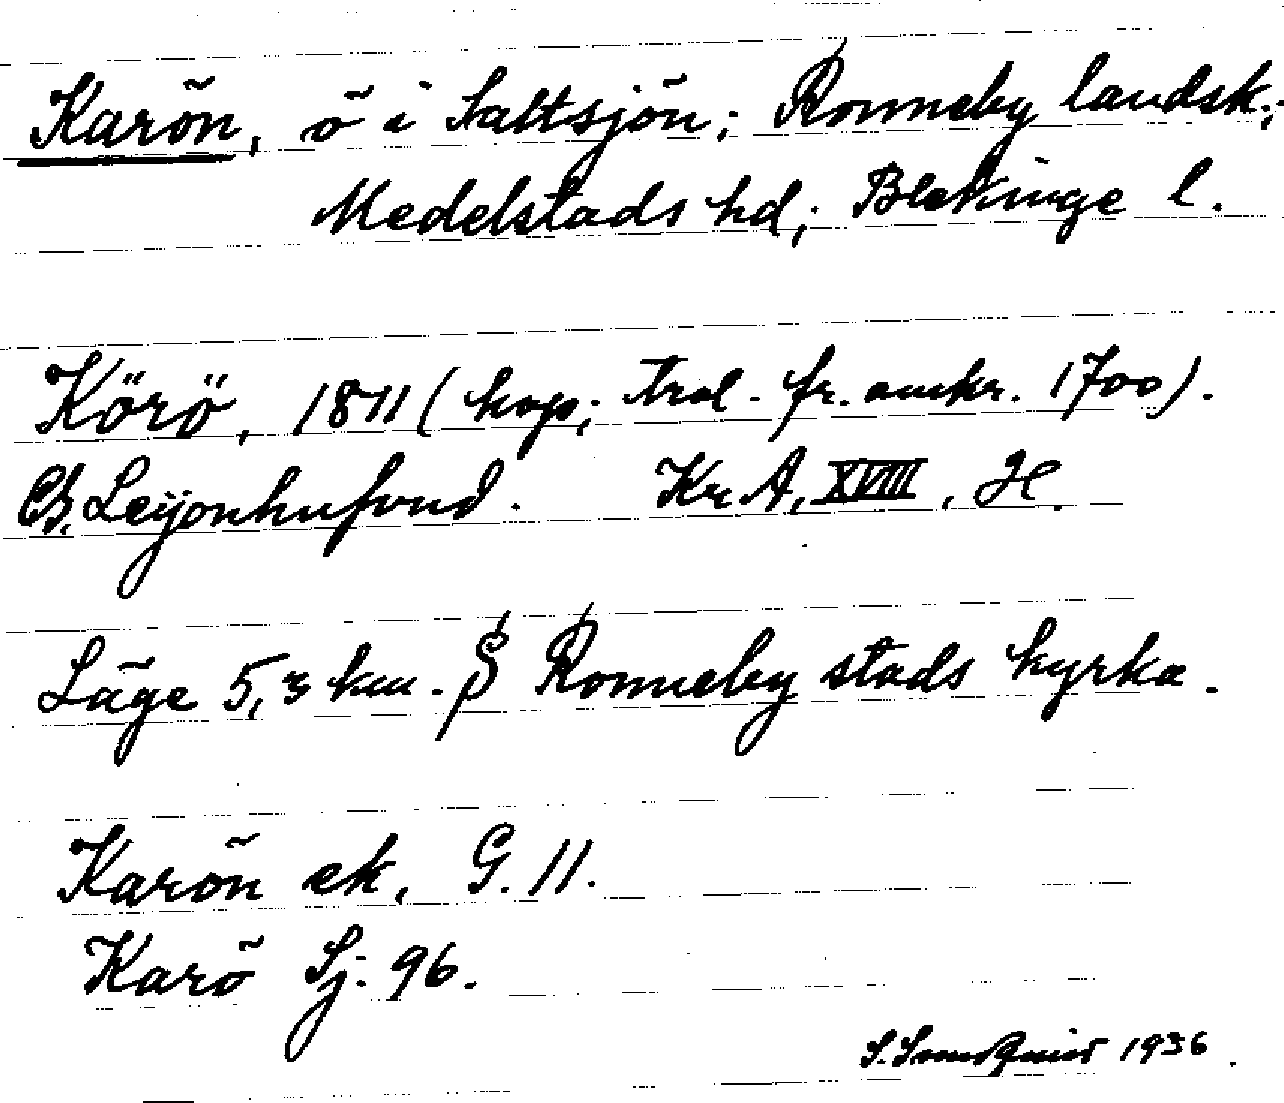 Karön, ö i Saltsjön; Ronneby landsk;
Medelstads hd; Blekinge l.
Körö, 1811 (kop; trol. fr. omkr. 1700).
Ch. Leijonhufvud. Kr A, XVIII, H.
Läge 5,3 km. S Ronneby stads kyrka.
Karön ek, G. 11.
Karö Sj. 96.
S. 1936.